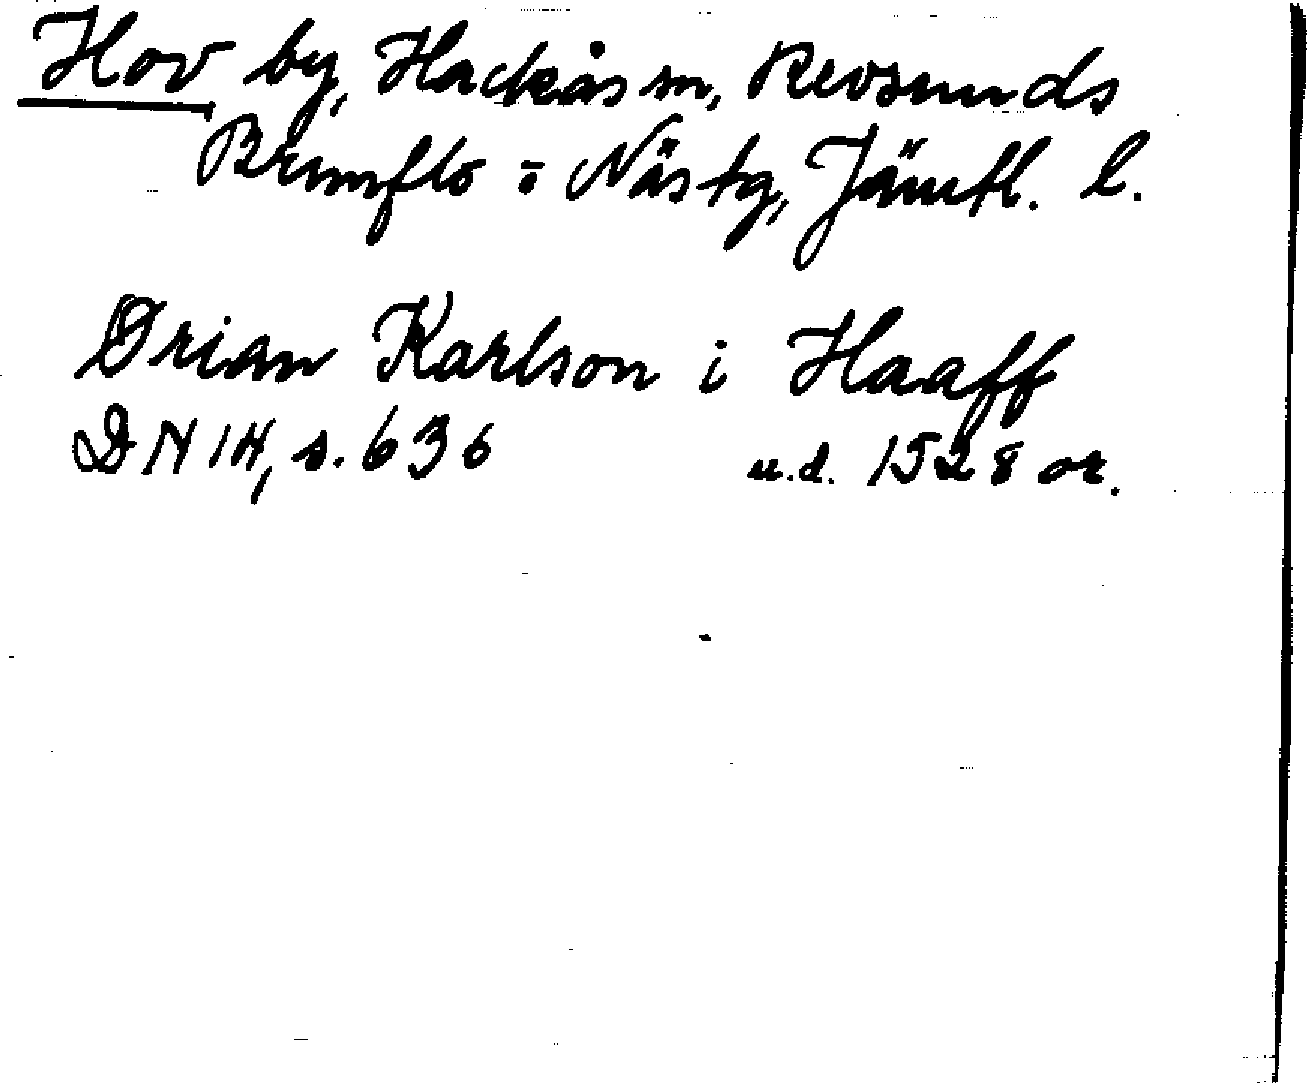 Hov by, Hackås sn, Revsunds
Brunflo o Näs tg, Jämtl. l.
Ørian Karlson i Haaff
DN 14, s. 636 u.d. 1528 or.